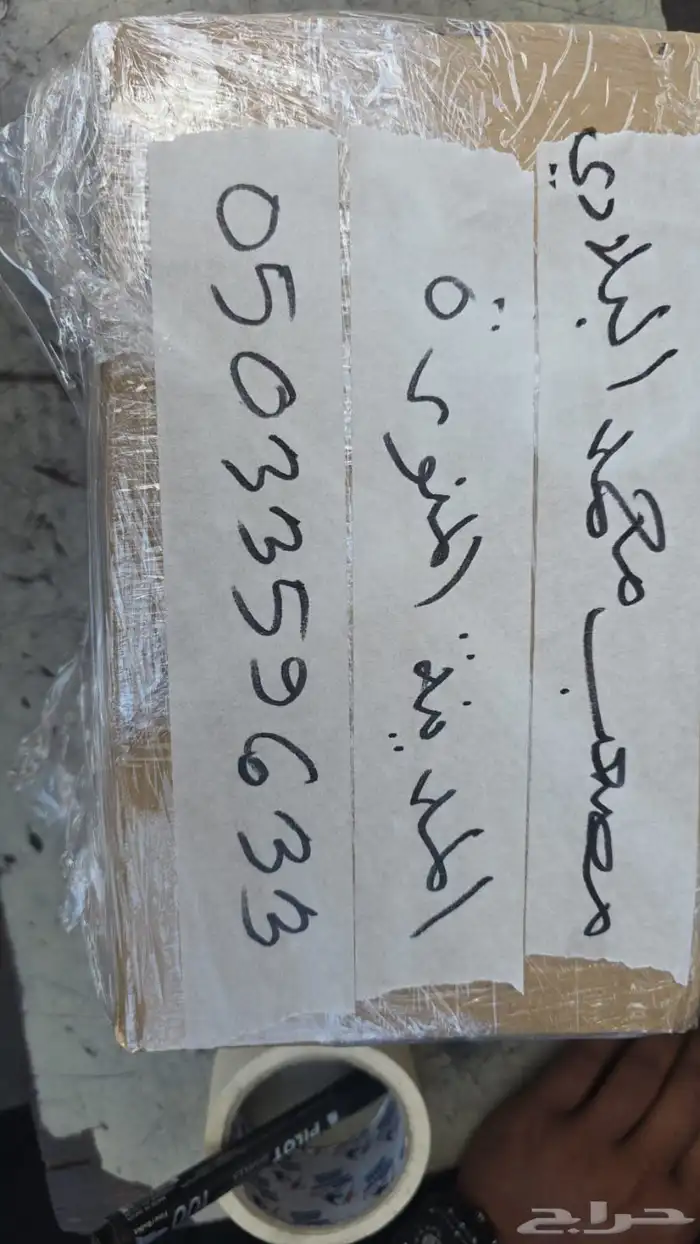 مصعب محمد البلادي
المدينة المنورة
0503359633
PILOT
100
حراج